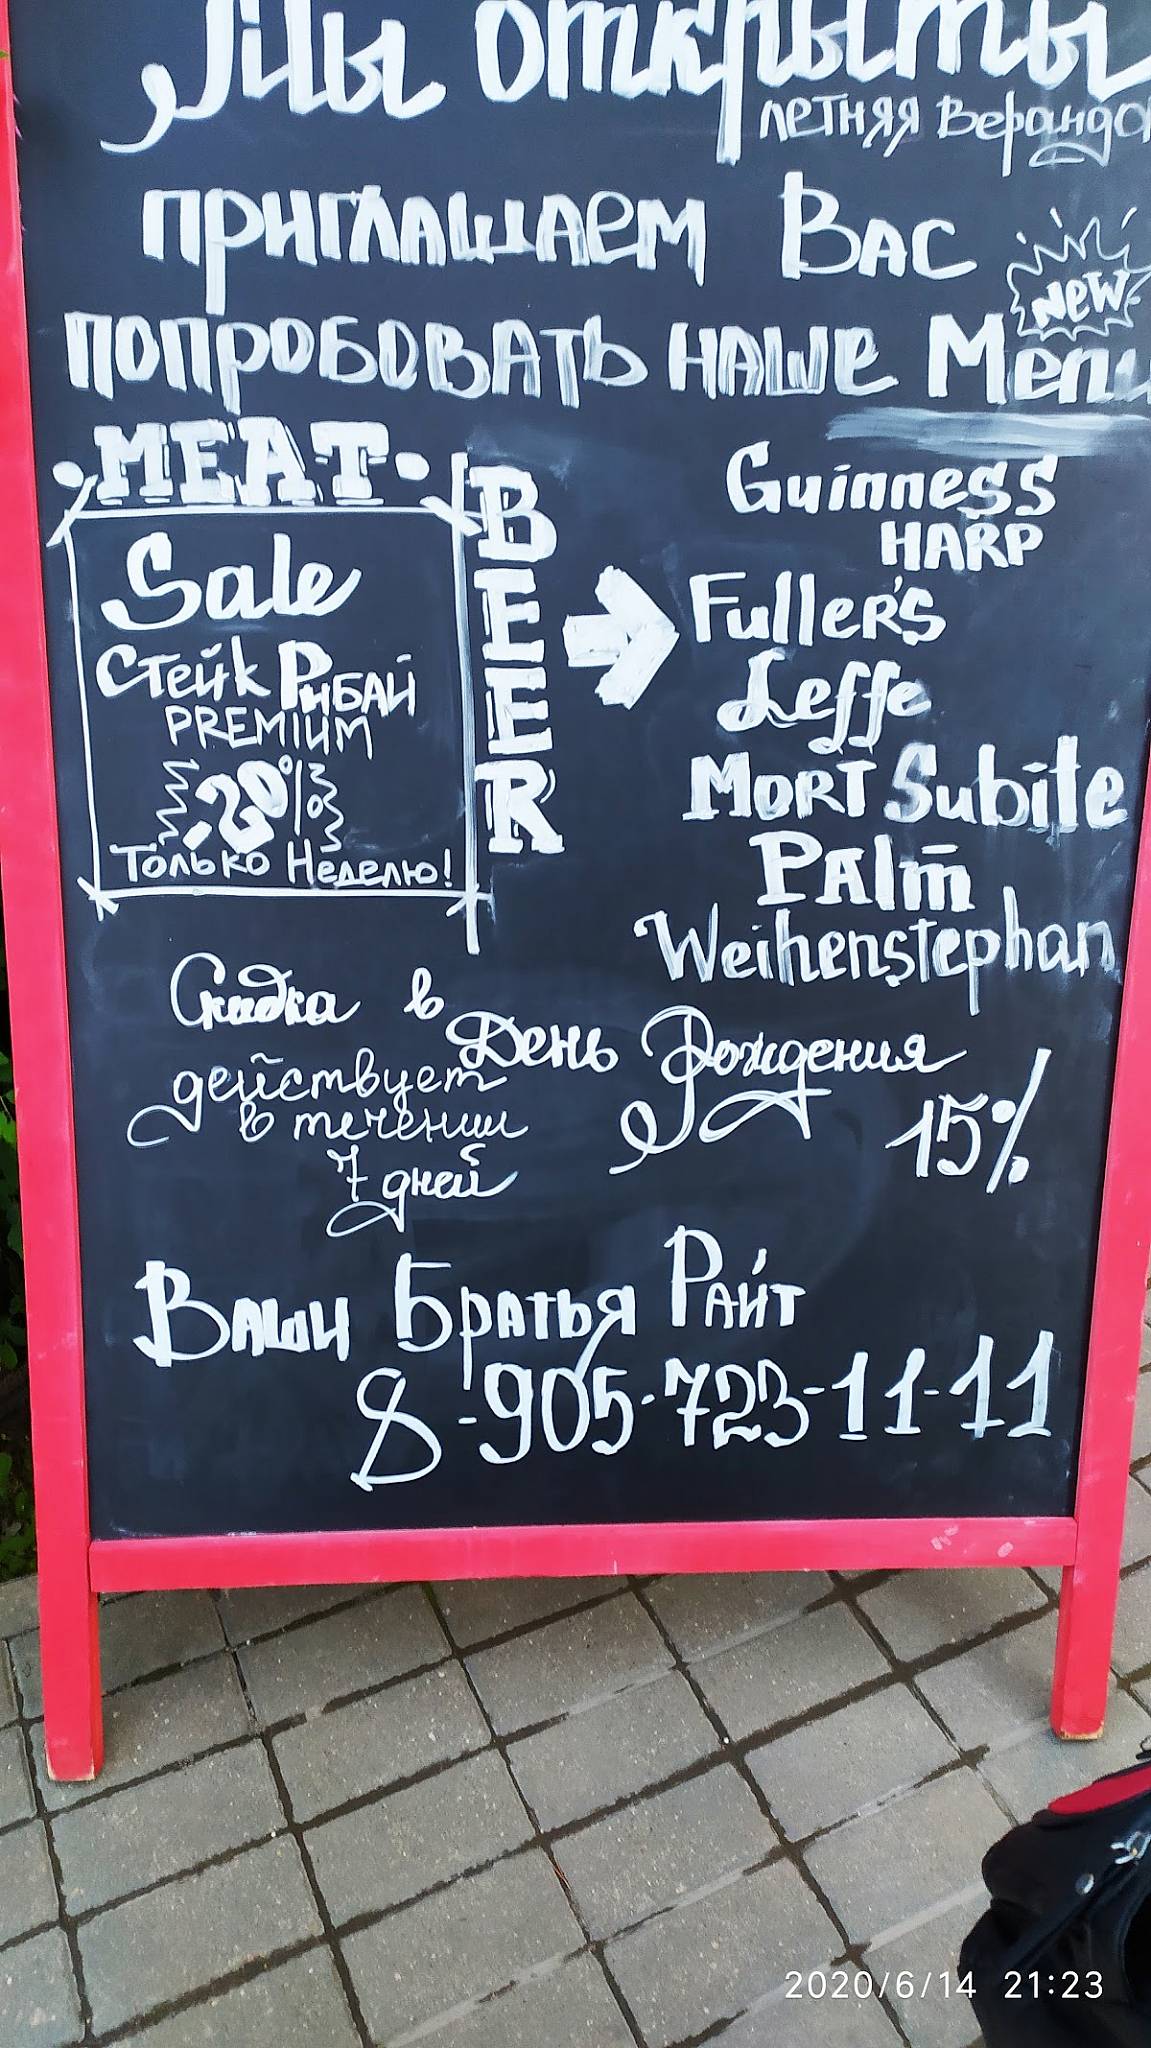 Мы открыты
летняя веранда
приглашаем Вас
попробовать наше Menu
New
·MEAT·
Sale
Стейк Рибай
PREMIUM
-20%
Только Неделю!
BEER
Guinness
HARP
Fuller's
Leffe
Mort Subite
Palm
Weihenstephan
Скидка в День Рождения
15%
действует
в течении
7 дней
Ваши Братья Райт
8-905-723-11-11
2020/6/14 21:23